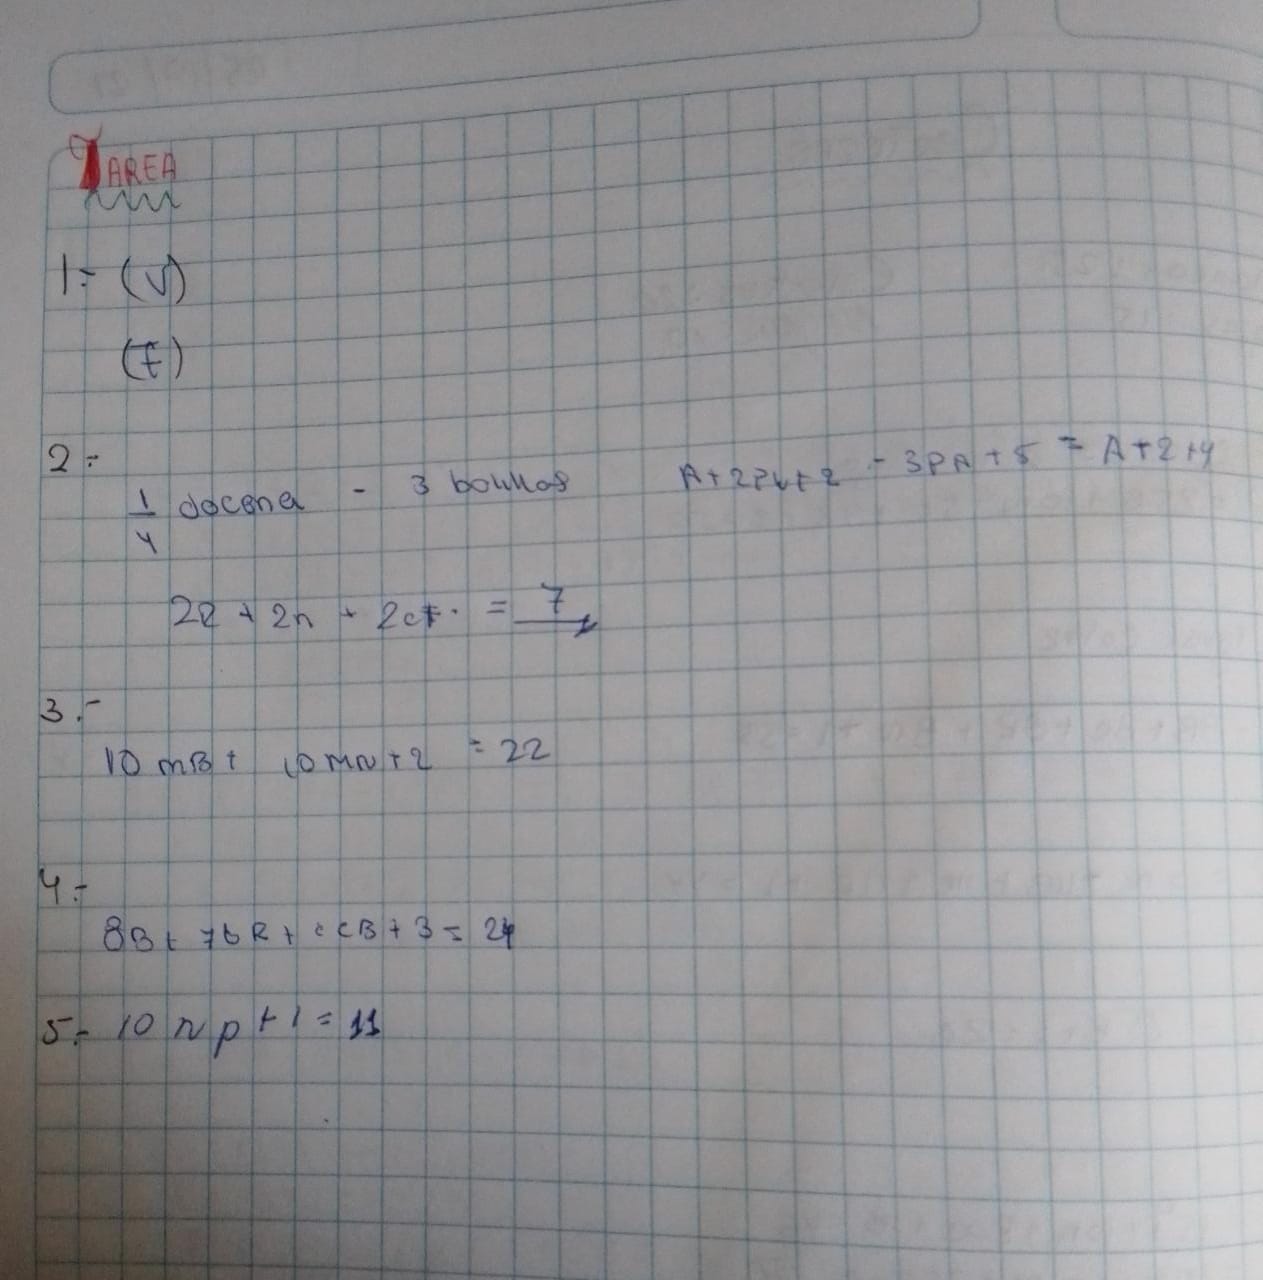 TAREA
1.- (V)
(F)
2.-
1/4 docena - 3 bolillas
A+2 - 3PA+5 = A+2+4
2R + 2n + 2ct. = 7
3.-
10 mB + 10 MN + 2 = 22
4.-
8B + 7bR + CB + 3 = 24
5.- 10 N p + 1 = 11